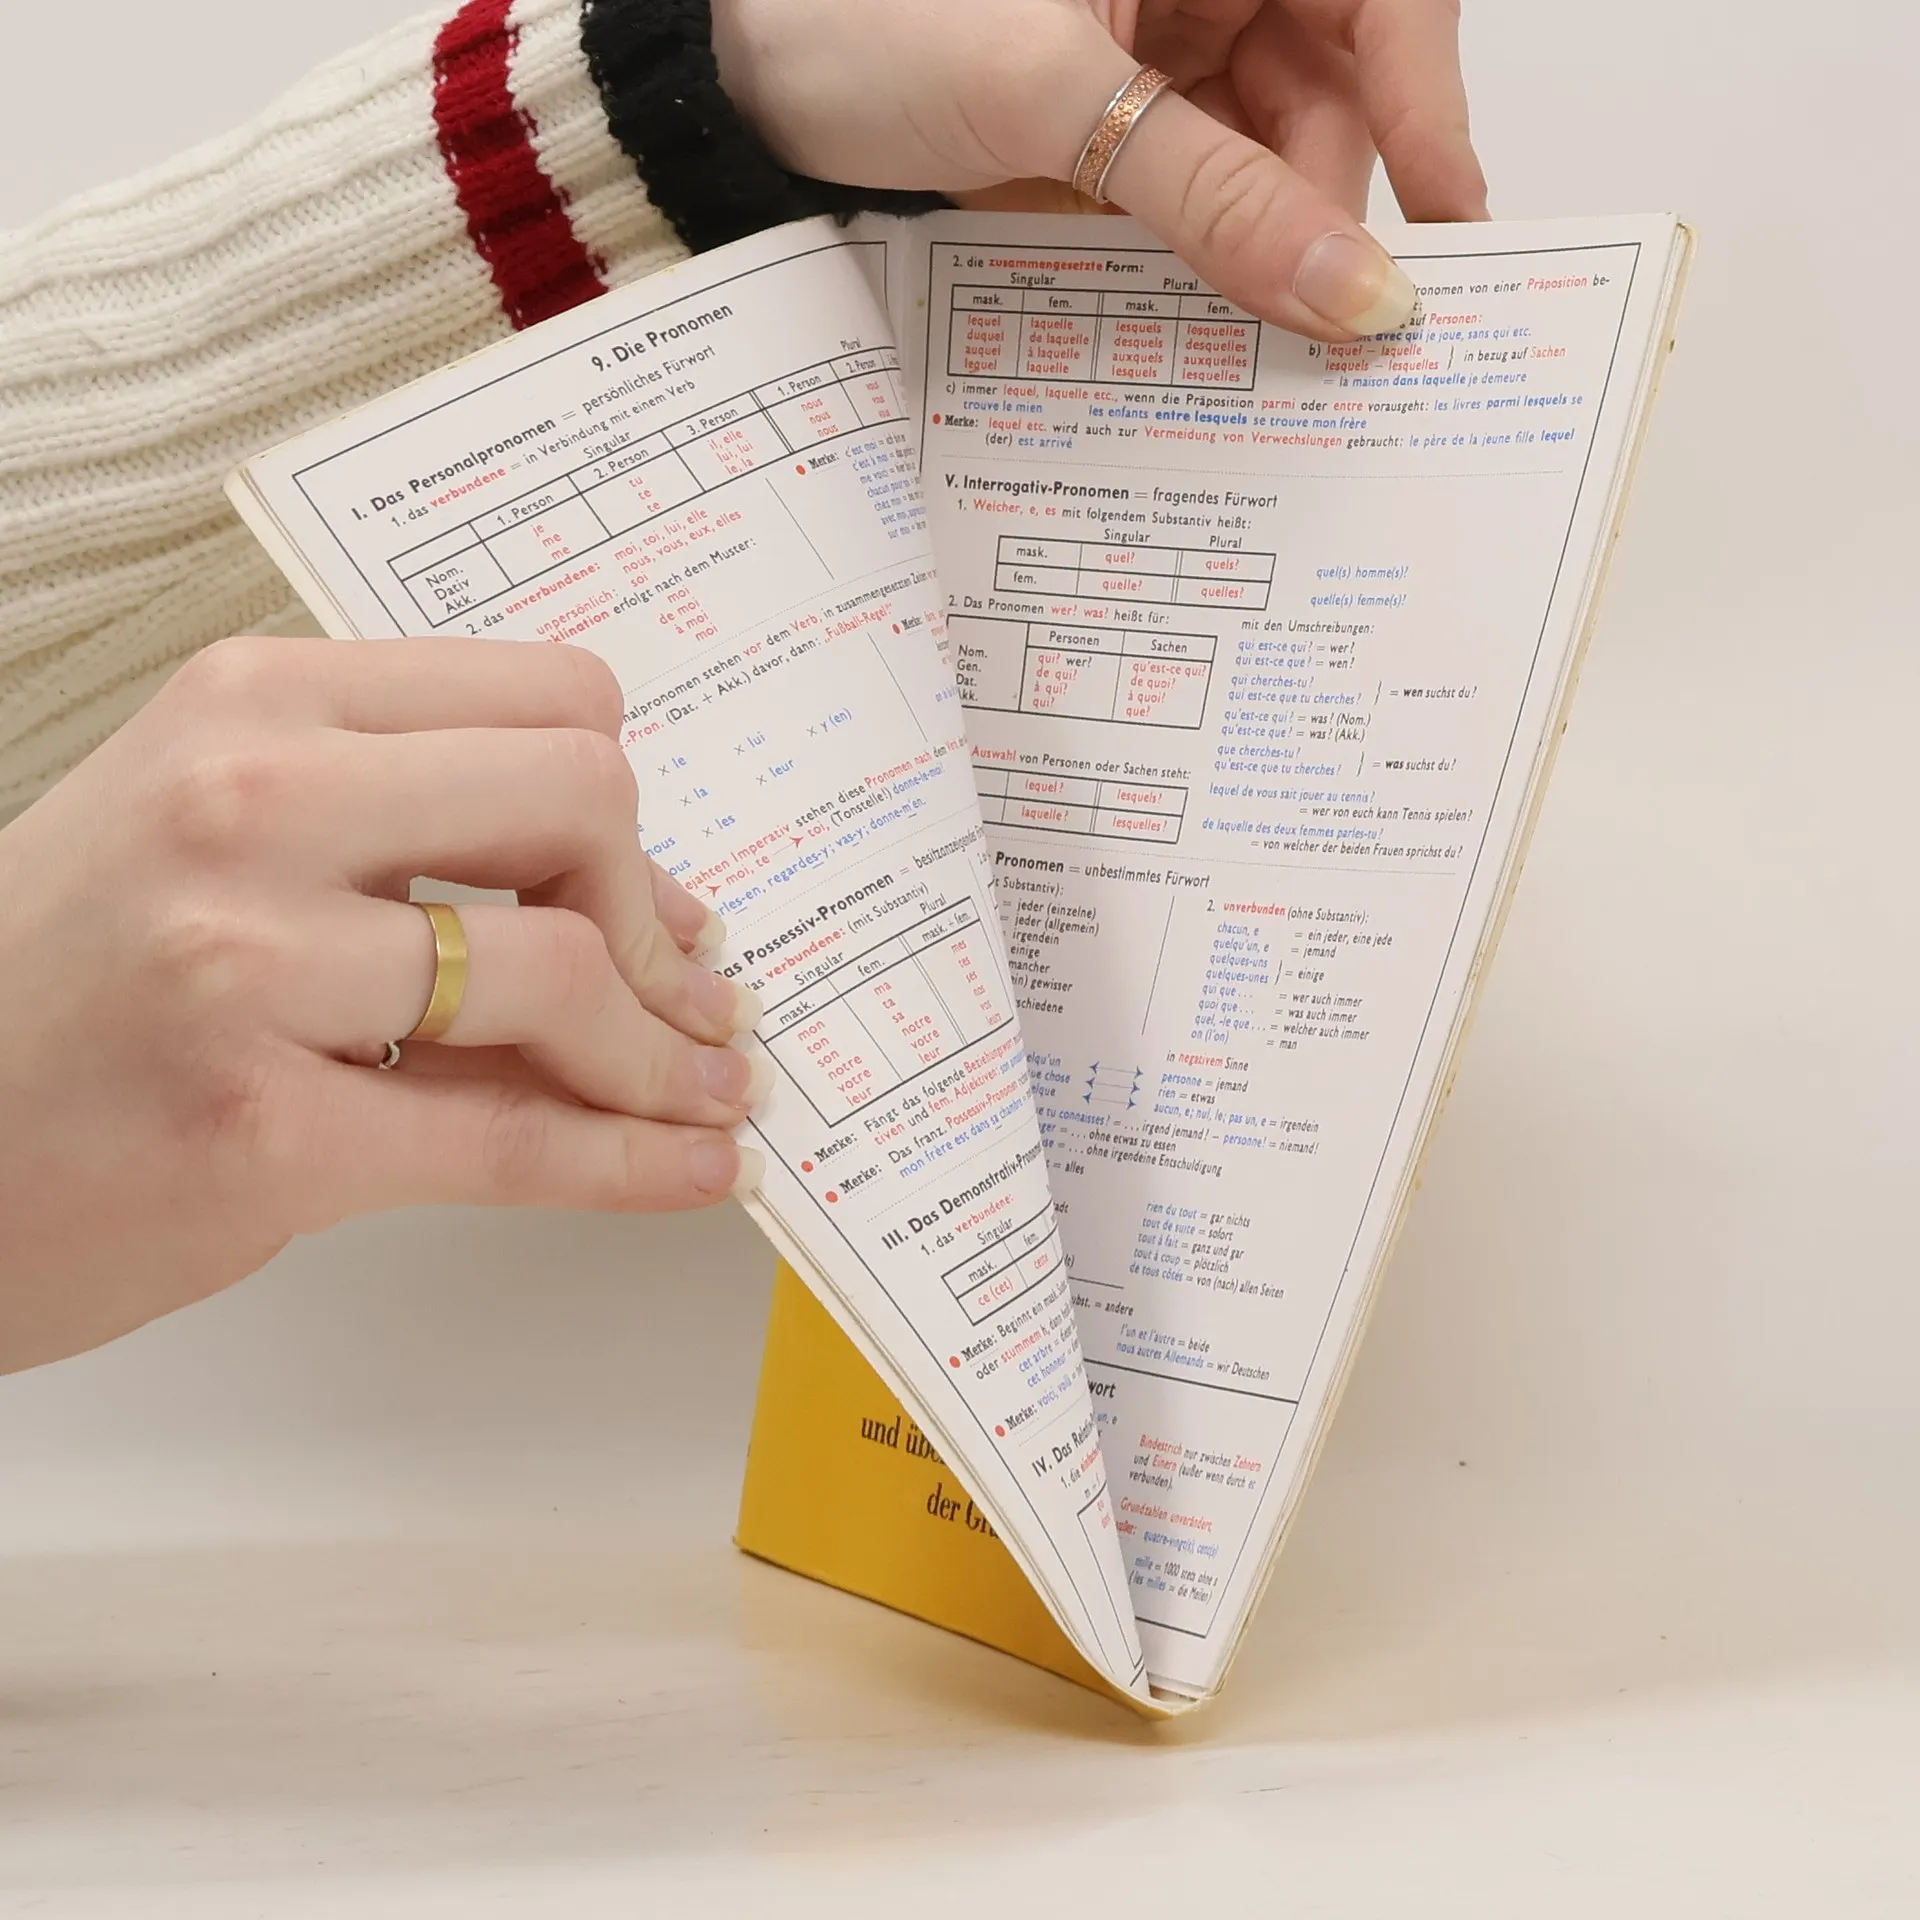 9. Die Pronomen
I. Das Personalpronomen = persönliches Fürwort
1. das verbundene = in Verbindung mit einem Verb
Singular Plural
1. Person 2. Person 3. Person 1. Person 2. Person
Nom. je tu il, elle nous vous
Dativ me te lui, lui nous vous
Akk. me te le, la nous vous
Merke: c'est moi = ich bin
c'est à moi =
me voici =
2. das unverbundene: moi, toi, lui, elle
nous, vous, eux, elles
unpersönlich: soi
erfolgt nach dem Muster:
moi
de moi
à moi
moi
stehen vor dem Verb, in zusammengesetzten Zeiten
-Pron. (Dat. + Akk.) davor, dann: „Fußball-Regel!"
Merke:
× le × lui × y (en)
× la × leur
nous × les
Imperativ stehen diese Pronomen nach dem
moi, te → toi, (Tonstelle!) donne-le-moi!
regardes-y; vas-y; donne-m'en.
Possessiv-Pronomen = besitzanzeigendes
verbundene: (mit Substantiv)
Singular Plural
mask. fem. mask. + fem.
mon ma mes
ton ta tes
son sa ses
notre notre nos
votre votre vos
leur leur leurs
Merke: Fängt das folgende Beziehungswort
tiven und fem. Adjektiven: son
Merke: Das franz. Possessiv-Pronomen
mon frère est dans sa chambre =
III. Das Demonstrativ-
1. das verbundene:
Singular
mask. fem.
ce (cet) cette
Merke: Beginnt ein mask.
oder stummem h, dann
cet arbre =
cet honneur =
Merke: voici, voilà =
IV. Das
1. die
2. die zusammengesetzte Form:
Singular Plural
mask. fem. mask. fem.
lequel laquelle lesquels lesquelles
duquel de laquelle desquels desquelles
auquel à laquelle auxquels auxquelles
lequel laquelle lesquels lesquelles
von einer Präposition be-
auf Personen:
avec qui je joue, sans qui etc.
b) lequel – laquelle
lesquels – lesquelles } in bezug auf Sachen
= la maison dans laquelle je demeure
c) immer lequel, laquelle etc., wenn die Präposition parmi oder entre vorausgeht: les livres parmi lesquels se
trouve le mien les enfants entre lesquels se trouve mon frère
Merke: lequel etc. wird auch zur Vermeidung von Verwechslungen gebraucht: le père de la jeune fille lequel
(der) est arrivé
V. Interrogativ-Pronomen = fragendes Fürwort
1. Welcher, e, es mit folgendem Substantiv heißt:
Singular Plural
mask. quel? quels? quel(s) homme(s)!
fem. quelle? quelles? quelle(s) femme(s)!
2. Das Pronomen wer? was? heißt für:
Personen Sachen
Nom. qui? wer? qu'est-ce qui?
Gen. de qui? de quoi?
Dat. à qui? à quoi?
Akk. qui? que?
mit den Umschreibungen:
qui est-ce qui? = wer?
qui est-ce que? = wen?
qui cherches-tu?
qui est-ce que tu cherches? } = wen suchst du?
qu'est-ce qui? = was? (Nom.)
qu'est-ce que? = was? (Akk.)
que cherches-tu?
qu'est-ce que tu cherches? } = was suchst du?
Auswahl von Personen oder Sachen steht:
lequel? lesquels?
laquelle? lesquelles?
lequel de vous sait jouer au tennis?
= wer von euch kann Tennis spielen?
de laquelle des deux femmes parles-tu?
= von welcher der beiden Frauen sprichst du?
Pronomen = unbestimmtes Fürwort
Substantiv):
= jeder (einzelne)
= jeder (allgemein)
irgendein
einige
mancher
gewisser
2. unverbunden (ohne Substantiv):
chacun, e = ein jeder, eine jede
quelqu'un, e = jemand
quelques-uns
quelques-unes } = einige
qui que ... = wer auch immer
quoi que ... = was auch immer
quel, -le que ... = welcher auch immer
on (l'on) = man
in negativem Sinne
personne = jemand
rien = etwas
aucun, e; nul, le; pas un, e = irgendein
tu connaisses! = ... irgend jemand! – personne! = niemand!
= ... ohne etwas zu essen
= ... ohne irgendeine Entschuldigung
= alles
rien du tout = gar nichts
tout de suite = sofort
tout à fait = ganz und gar
tout à coup = plötzlich
de tous côtés = von (nach) allen Seiten
= andere
l'un et l'autre = beide
nous autres Allemands = wir Deutschen
Bindestrich nur zwischen Zehnern
und Einern (außer wenn durch et
verbunden).
Grundzahlen unverändert,
quatre-vingt(s), cent(s)
mille = 1000 stets ohne s
(les milles = die Meilen)
und
der